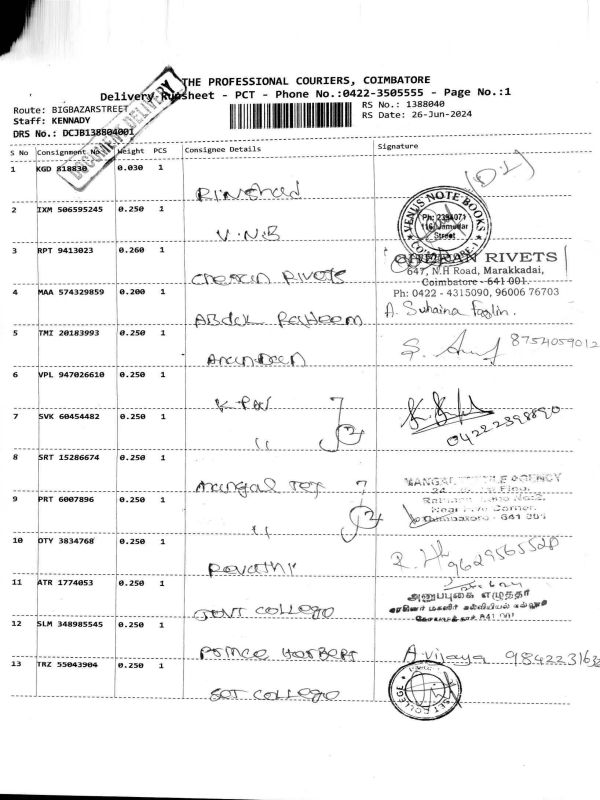 THE PROFESSIONAL COURIERS, COIMBATORE
Delivery Runsheet - PCT - Phone No.:0422-3505555 - Page No.:1
Route: BIGBAZARSTREET
RS No.: 1388040
Staff: KENNADY
RS Date: 26-Jun-2024
DRS No.: DCJB138804001
DOCUMENT DELIVERY
S No Consignment No Weight PCS Consignee Details Signature
1 KGD 818830 0.030 1
2 IXM 506595245 0.250 1 V.N.B
VENUS NOTE BOOKS
Ph: 2394071
116, Jamedar
Street
COIMBATORE-1
3 RPT 9413023 0.260 1 Cheran Rivets
CHERAN RIVETS
647, N.H Road, Marakkadai,
Coimbatore - 641 001.
Ph: 0422 - 4315090, 96006 76703
4 MAA 574329859 0.200 1 Abdul Raheem A. Suhaina Fazlin.
5 TMI 20183993 0.250 1 8754059012
6 VPL 947026610 0.250 1
7 SVK 60454482 0.250 1 " 2 04222398890
8 SRT 15286674 0.250 1 Mangal Tex
9 PRT 6007896 0.250 1 " 2
Near Corner,
Coimbatore - 641 001
10 OTY 3834768 0.250 1 Revathi 9629565528
11 ATR 1774053 0.250 1 Govt College
அனுப்புகை எழுத்தர்
12 SLM 348985545 0.250 1 Prince Herbert A.vijaya
13 TRZ 55043904 0.250 1 SET College
SET COLLEGE